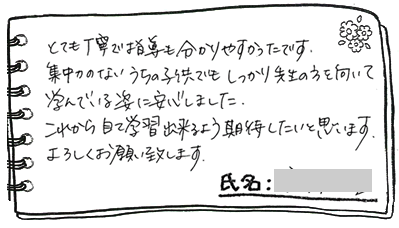 とても丁寧で指導も分かりやすかったです.
集中力のないうちの子供でもしっかり先生の方を向いて
学んでいる姿に安心しました.
これから自て学習出来るよう期待したいと思います.
よろしくお願い致します.
氏名: